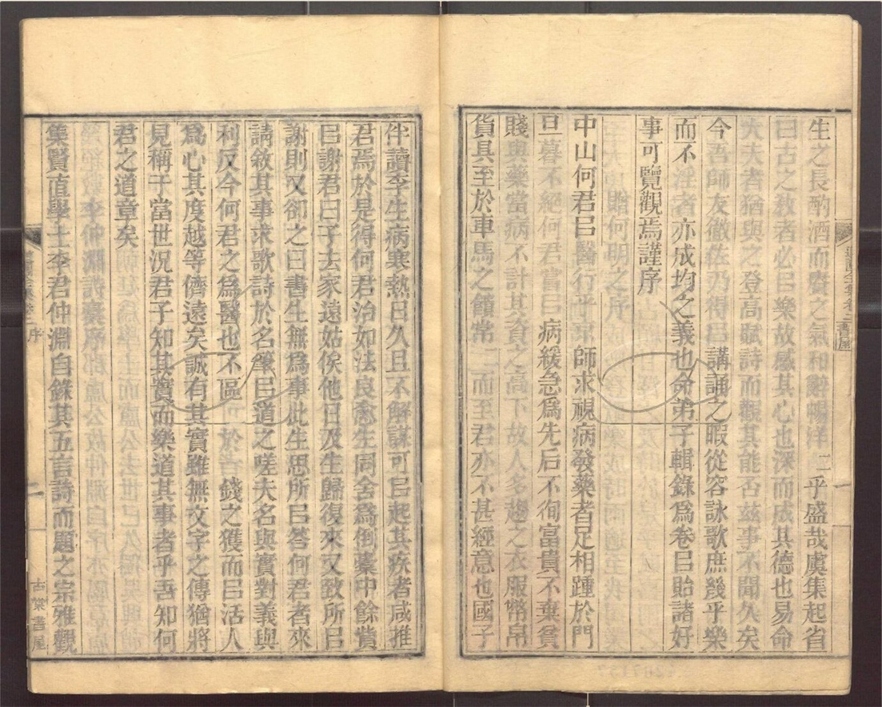 生之長酌酒而賡之氣和辭暢洋二乎盛哉虞集起省
曰古之教者必㠯樂故感其心也深而成其德也易命
大夫者猶與之登高賦詩而觀其能否兹事不聞久矣
今吾師友徹佐乃得㠯講誦之暇從容詠歌庶幾乎樂
而不淫者亦成均之義也命弟子輯錄為卷㠯貽諸好
事可覽觀焉謹序
贈何明之序
中山何君㠯醫行乎京師求視病發藥者足相踵於門
旦暮不絕何君嘗曰病緩急為先后不徇富貴不棄貧
賤與藥當病不計其資之高下故人多趨之衣服幣帛
貨具至於車馬之饋常二而至君亦不甚經意也國子
伴讀李生病寒熱日久且不解謀可㠯起其疾者咸推
君焉於是得何君治如法良愈生同舍為倒橐中餘貲
㠯謝君曰子去家遠姑俟他日及生歸復來又致所㠯
謝則又卻之曰書生無為事此生思所㠯答何君者來
請敘其事求歌詩於名筆㠯遺之嗟夫名與實對義與
利反今何君之為醫也不區於錢之獲而㠯活人
為心其度越等儕遠矣誠有其實雖無文字之傳猶將
見稱于當世況君子知其實而樂道其事者乎吾知何
君之道章矣
集賢直學士李君仲淵自錄其五言詩而題之宗雅觀
序
二
古棠書屋